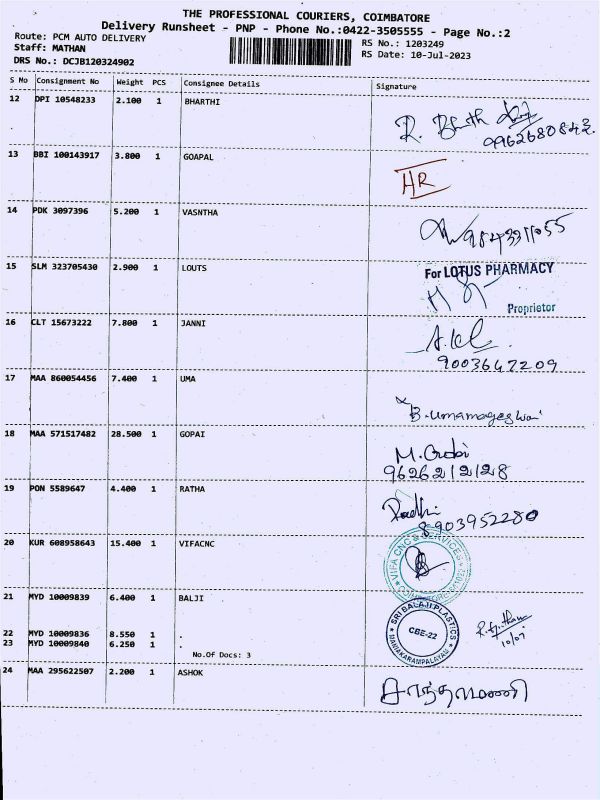 THE PROFESSIONAL COURIERS, COIMBATORE
Delivery Runsheet - PNP - Phone No.:0422-3505555 - Page No.:2
Route: PCM AUTO DELIVERY
RS No.: 1203249
Staff: MATHAN
RS Date: 10-Jul-2023
DRS No.: DCJB120324902
S No Consignment No Weight PCS Consignee Details Signature
12 DPI 10548233 2.100 1 BHARTHI
9962680842
13 BBI 100143917 3.800 1 GOAPAL
HR
14 PDK 3097396 5.200 1 VASNTHA
15 SLM 323705430 2.900 1 LOUTS
For LOTUS PHARMACY
Proprietor
16 CLT 15673222 7.800 1 JANNI
9003647209
17 MAA 860054456 7.400 1 UMA
B. Umamageswari
18 MAA 571517482 28.500 1 GOPAI
M. Gobi
9626212128
19 PON 5589647 4.400 1 RATHA
Radhi
8903952280
20 KUR 608958643 15.400 1 VIFACNC
VIFA CNC & SERVICES
21 MYD 10009839 6.400 1 BALJI
SRI BALAJI PLASTICS
CBE-22
MANIAKARAMPALAYAM
10/07
22 MYD 10009836 8.550 1 .
23 MYD 10009840 6.250 1 .
No.Of Docs: 3
24 MAA 295622507 2.200 1 ASHOK
சாந்தாமணி